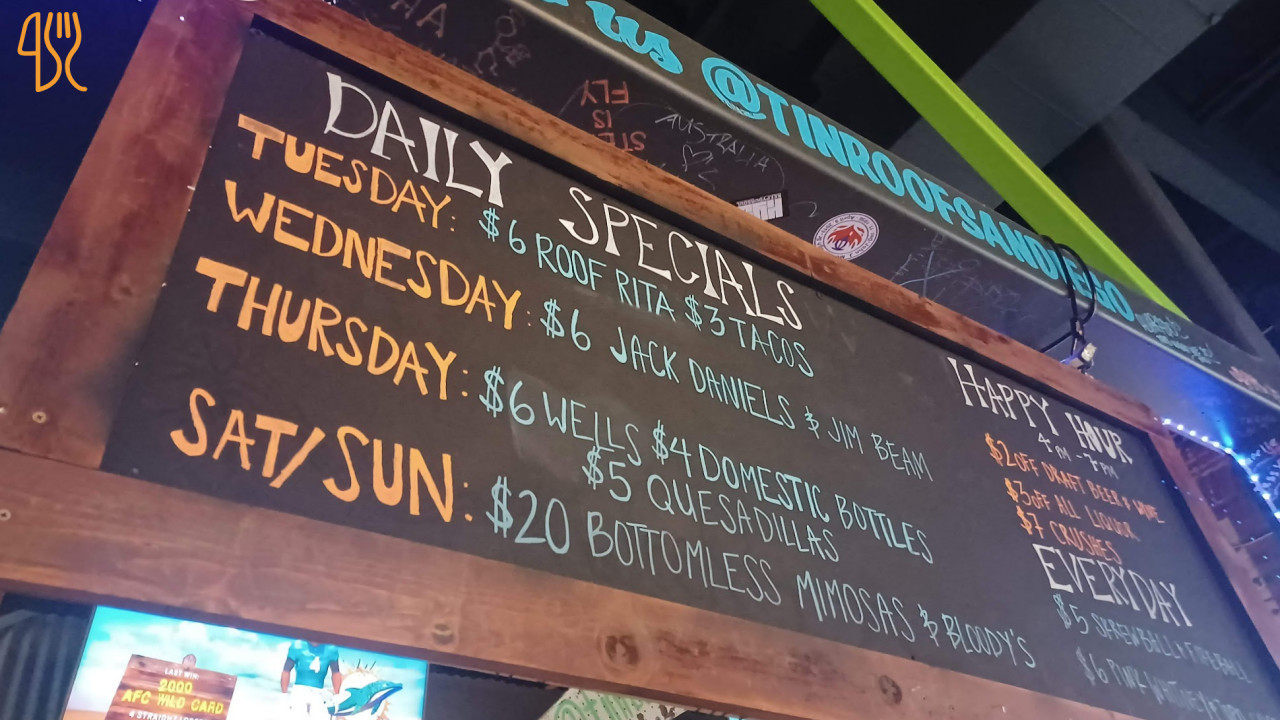 us @TINROOFSANDIEGO
STL IS FLY
AUSTRALIA
DAILY SPECIALS
TUESDAY: $6 ROOF RITA $3 TACOS
WEDNESDAY: $6 JACK DANIELS & JIM BEAM
THURSDAY: $6 WELLS $4 DOMESTIC BOTTLES
$5 QUESADILLAS
SAT/SUN: $20 BOTTOMLESS MIMOSAS & BLOODY'S
HAPPY HOUR
4PM - 7PM
$2 OFF DRAFT BEER & WINE
$3 OFF ALL LIQUOR
$7 CRUSHES
EVERYDAY
$5 SKREWBALL & FIREBALL
$6 PINK WHITNEY
LAST WIN:
2000
AFC WILD CARD